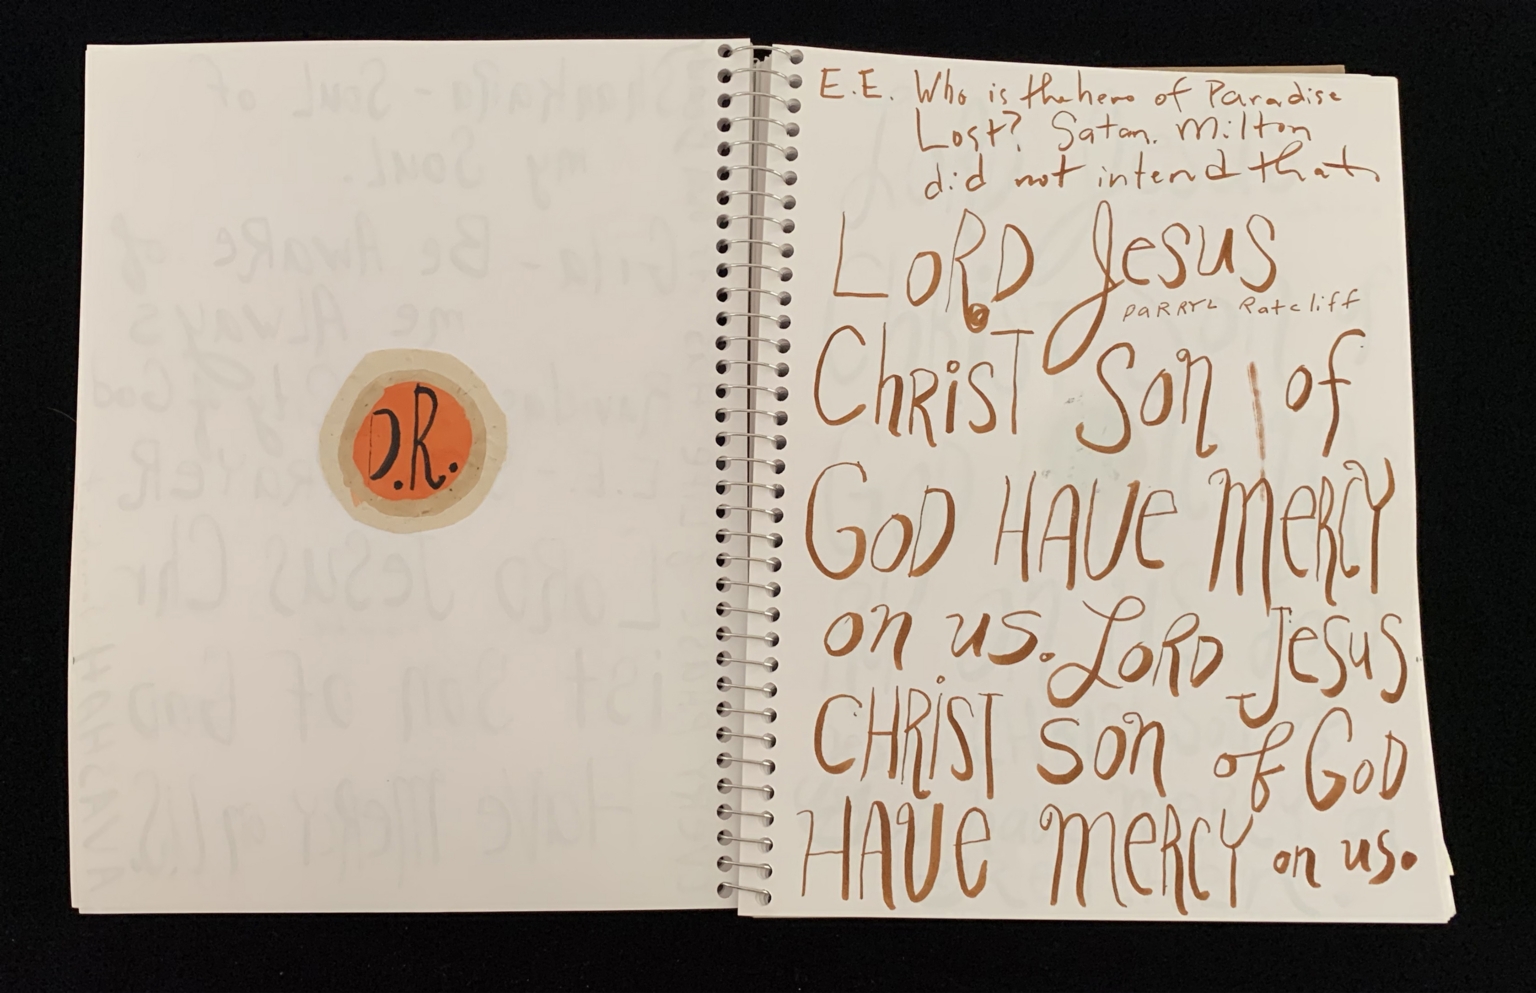 D.R.
E.E. Who is the hero of Paradise
Lost? Satan. Milton
did not intend that.
LORD Jesus
DARRYL Ratcliff
Christ Son of
GOD HAVE MERCY
on us. LORD Jesus
CHRIST son of GOD
HAVE MERCY on us.